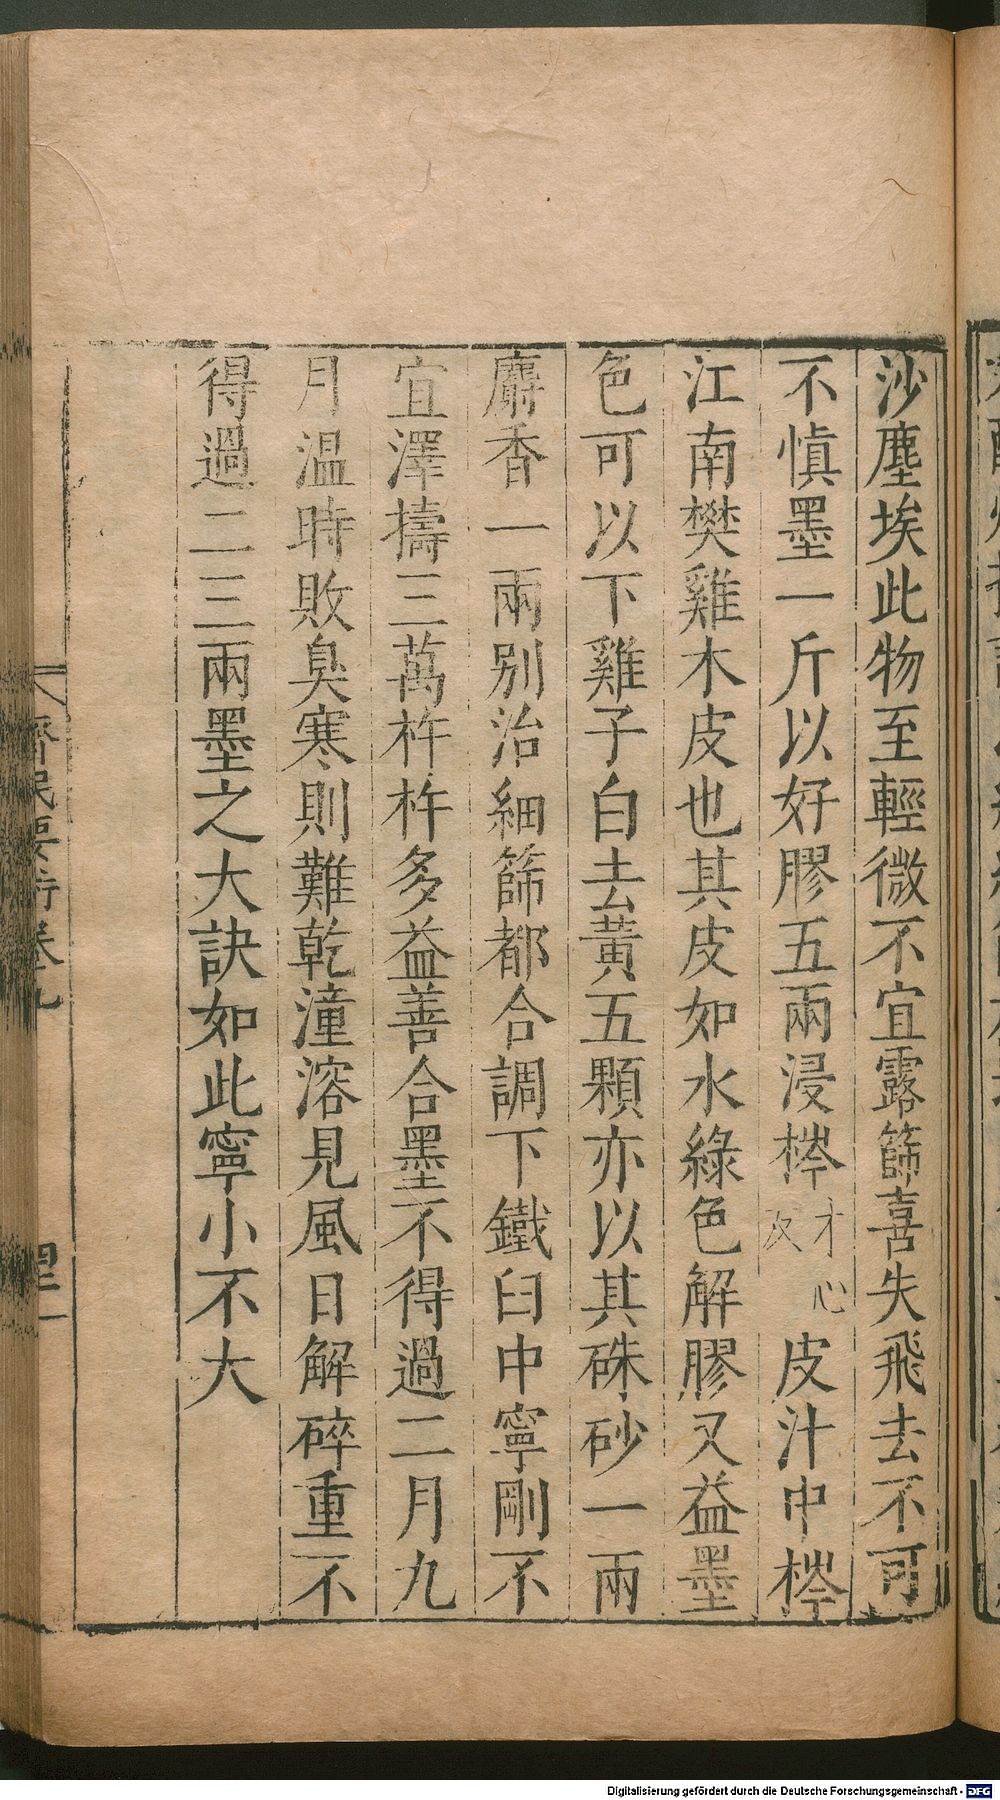 沙塵埃此物至輕微不宜露篩喜失飛去不可
不慎墨一斤以好膠五兩浸梣才心反皮汁中梣
江南樊雞木皮也其皮如水綠色解膠又益墨
色可以下雞子白去黃五顆亦以其硃砂一兩
麝香一兩別治細篩都合調下鐵臼中寧剛不
宜澤擣三萬杵杵多益善合墨不得過二月九
月溫時敗臭寒則難乾潼溶見風日解碎重不
得過二三兩墨之大訣如此寧小不大
齊民要術卷九
四二
Digitalisierung gefördert durch die Deutsche Forschungsgemeinschaft - DFG